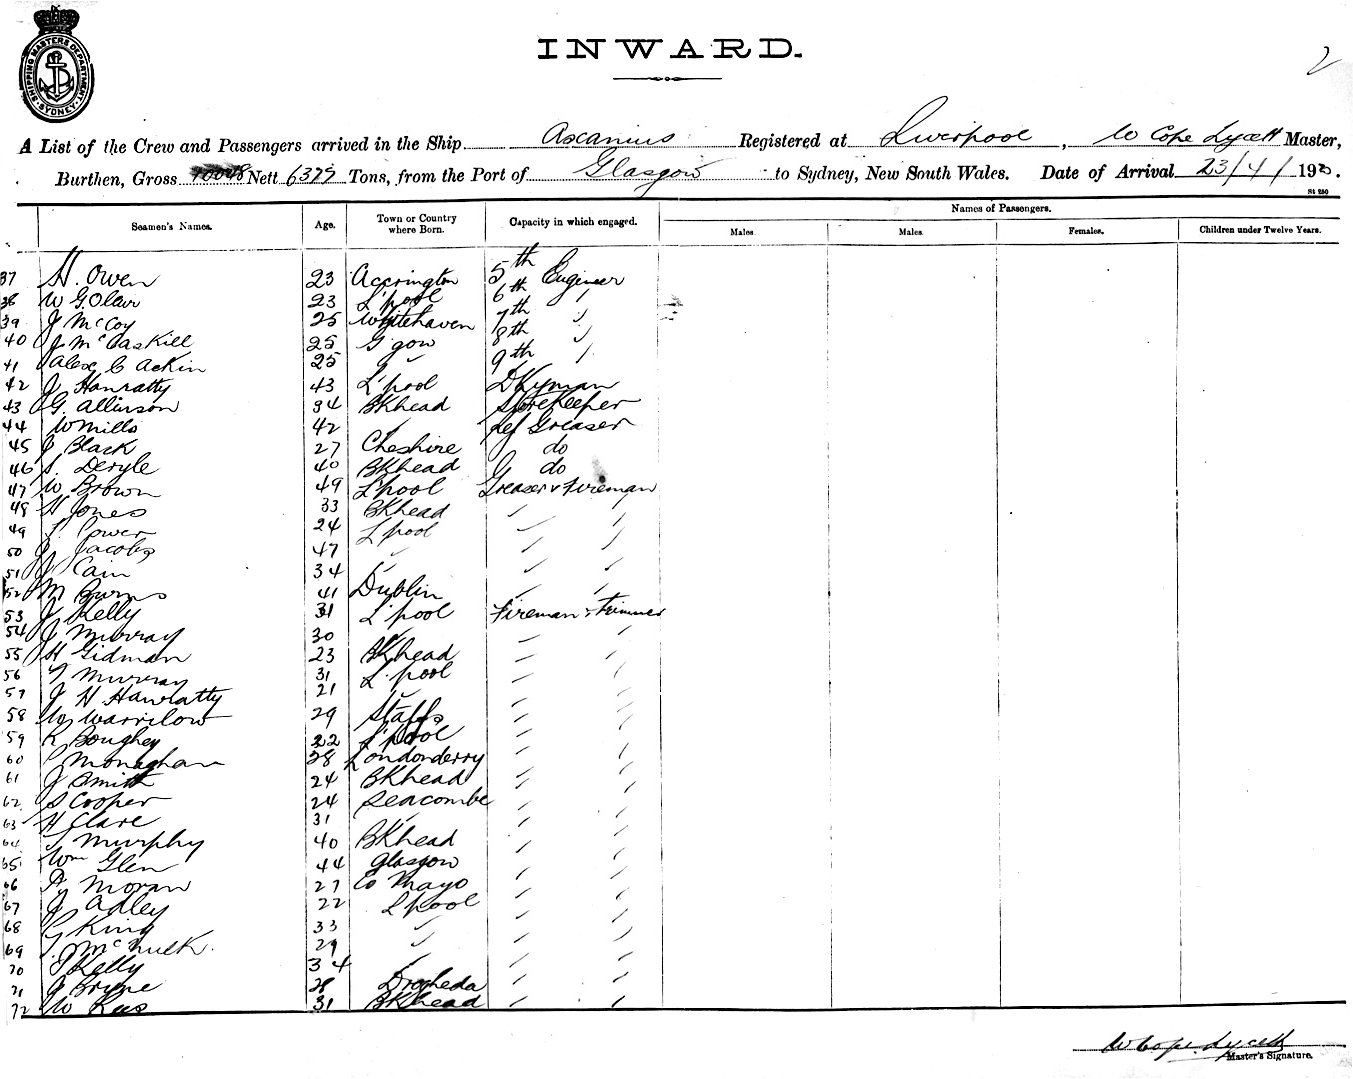 SHIPPING MASTERS DEPARTMENT · SYDNEY ·
INWARD.
2
A List of the Crew and Passengers arrived in the Ship Ascanius Registered at Liverpool, W Cope Lycett Master,
Burthen, Gross 10048 Nett 6379 Tons, from the Port of Glasgow to Sydney, New South Wales. Date of Arrival 23/4/1920.
St 250
Seamen's Names. Age. Town or Country where Born. Capacity in which engaged. Names of Passengers.
Males. Males. Females. Children under Twelve Years.
37 H. Owen 23 Accrington 5th Engineer
38 W G. 23 L'pool 6th "
39 J McCoy 25 Whitehaven 7th "
40 J McCaskill 25 G'gow 8th "
41 Alex C Ackin 25 " 9th "
42 J Hanratty 43 L'pool Dkyman
43 G. Allinson 34 BKhead Storekeeper
44 W Mills 42 " Ref Greaser
45 J Black 27 Cheshire do
46 40 BKhead do
47 W Brown 49 L'pool Greaser & Fireman
48 H Jones 33 BKhead " "
49 Power 24 L'pool " "
50 J Jacobs 47 " " "
51 J Cain 34 " " "
52 M Burns 41 Dublin " "
53 J Kelly 31 L'pool Fireman & Trimmer
54 J Murray 30 " " "
55 H Gidman 23 BKhead " "
56 T Murray 31 L'pool " "
57 J H Hanratty 21 " " "
58 W Warrilow 29 Staffs " "
59 R Boughey 22 L'pool " "
60 P Monaghan 28 Londonderry " "
61 J Smith 24 BKhead " "
62 S Cooper 24 Seacombe " "
63 H Clare 31 " " "
64 T Murphy 40 BKhead " "
65 Wm Glen 44 Glasgow " "
66 P Moran 27 Co Mayo " "
67 J Adley 22 L'pool " "
68 G King 33 " " "
69 T. 29 " " "
70 J Kelly 34 " " "
71 J Bryne 28 Drogheda " "
72 W Rees 31 BKhead " "
W Cope Lycett
Master's Signature.